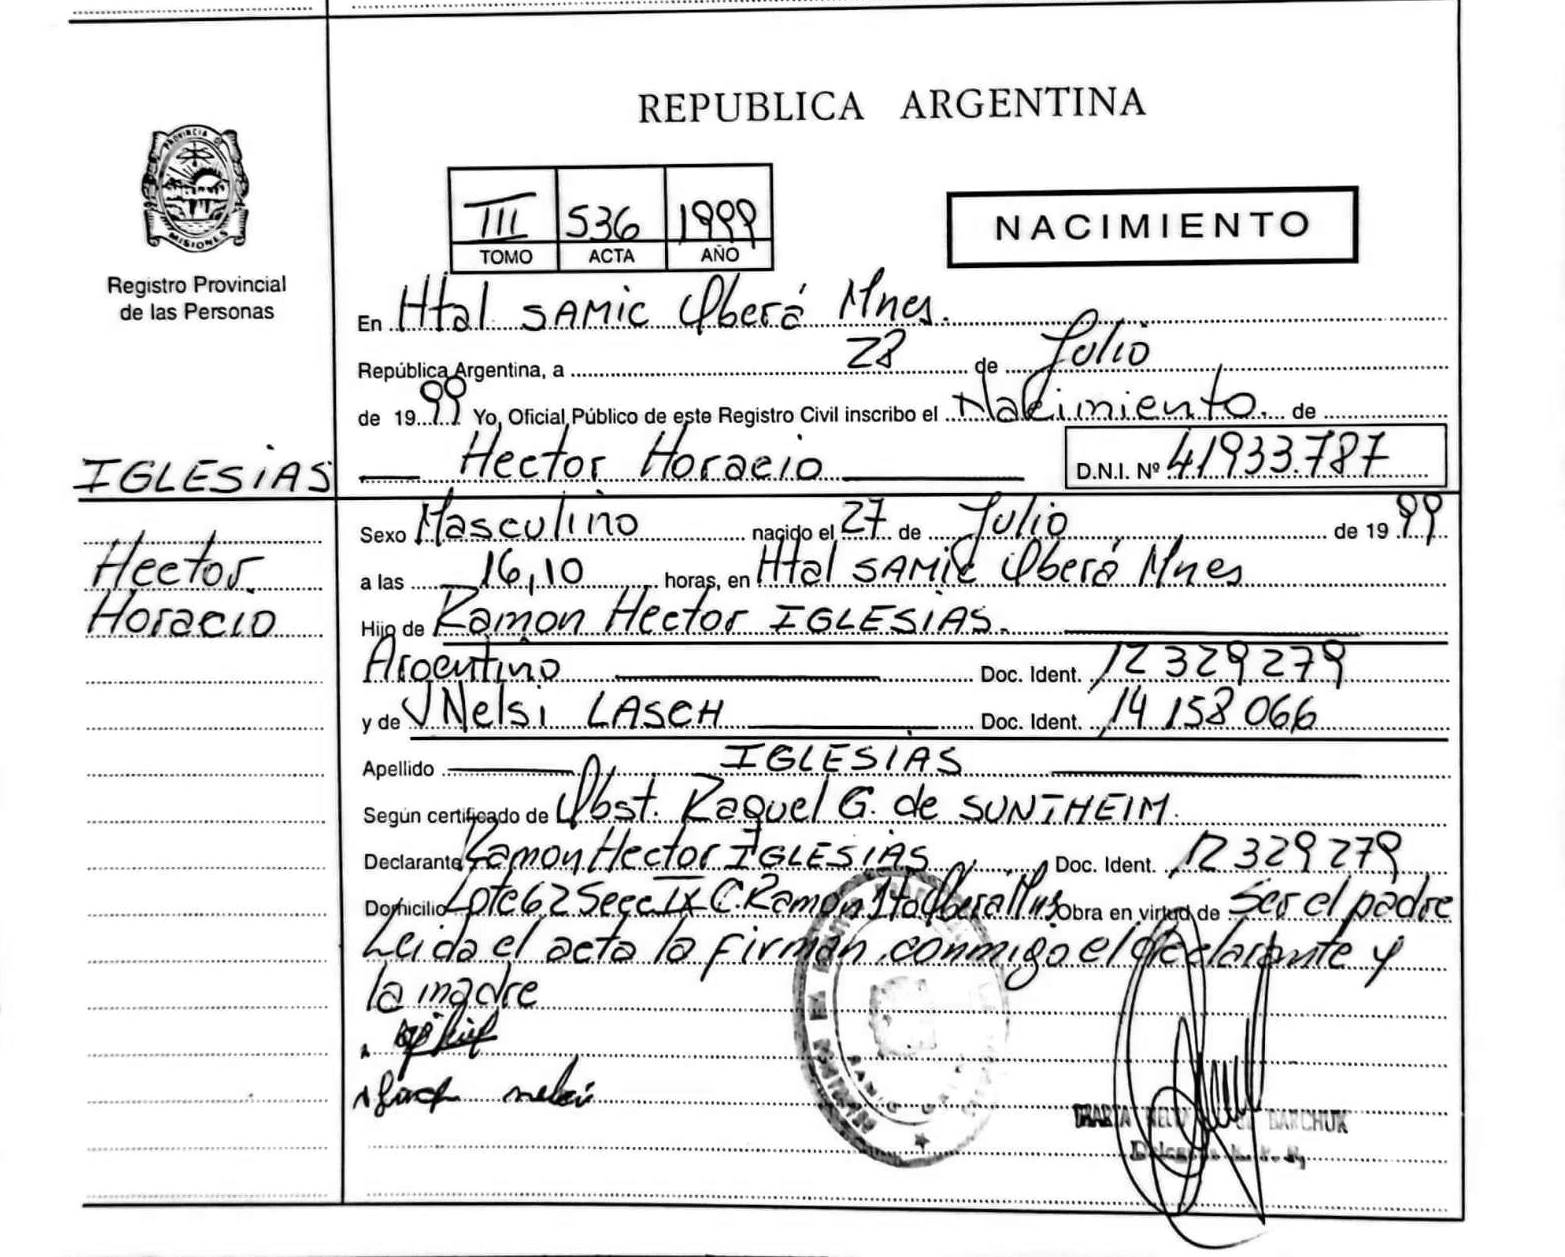 REPUBLICA ARGENTINA
PROVINCIA D
MISIONES
Registro Provincial
de las Personas
III 536 1999
TOMO ACTA AÑO
NACIMIENTO
En Htal SAMIC Oberá Mnes.
República Argentina, a 28 de Julio
de 1999 Yo, Oficial Público de este Registro Civil inscribo el Nacimiento. de
IGLESIAS
Hector Horacio
D.N.I. Nº 41933.787
Hector
Horacio
Sexo Masculino nacido el 27 de Julio de 1999
a las 16,10 horas, en Htal SAMIC Oberá Mnes
Hijo de Ramon Hector IGLESIAS.
Argentino Doc. Ident. 12 329 279
y de Nelsi LASCH Doc. Ident. 14 158 066
Apellido IGLESIAS
Según certificado de Obst. Raquel G. de SUNTHEIM.
Declarante Ramon Hector IGLESIAS Doc. Ident. 12 329 279
Domicilio Lote 62 Secc. IX C. Ramon Obra en virtud de Ser el padre
Leida el acta la firman conmigo el declarante y
la madre
BARCHUK